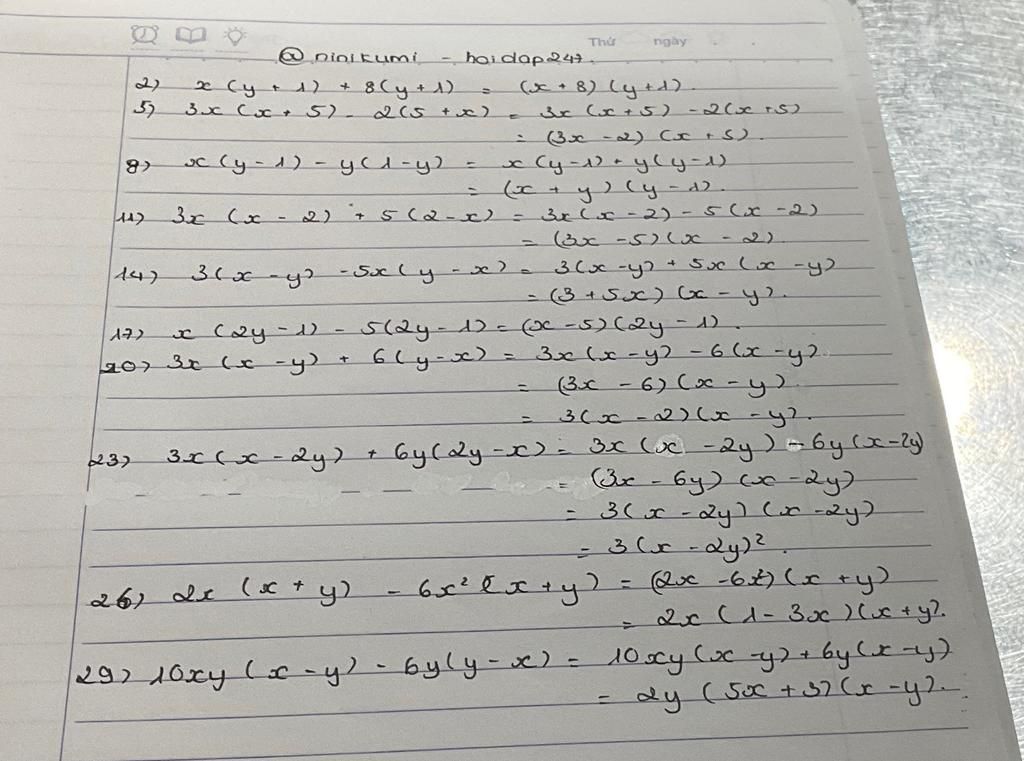 Thứ ngày
@ninikumi - hoidap247.
2) x (y + 1) + 8(y + 1) = (x + 8) (y + 1).
5) 3x (x + 5) - 2(5 + x) = 3x (x + 5) - 2(x + 5)
= (3x - 2) (x + 5).
8) x(y - 1) - y(1 - y) = x(y - 1) + y(y - 1)
= (x + y) (y - 1).
11) 3x (x - 2) + 5(2 - x) = 3x(x - 2) - 5(x - 2)
= (3x - 5)(x - 2).
14) 3(x - y) - 5x(y - x) = 3(x - y) + 5x(x - y)
= (3 + 5x) (x - y).
17) x (2y - 1) - 5(2y - 1) = (x - 5)(2y - 1).
20) 3x (x - y) + 6(y - x) = 3x(x - y) - 6(x - y).
= (3x - 6)(x - y).
= 3(x - 2)(x - y).
23) 3x(x - 2y) + 6y(2y - x) = 3x(x - 2y) - 6y(x - 2y)
= (3x - 6y) (x - 2y)
= 3(x - 2y) (x - 2y)
= 3(x - 2y)².
26) 2x (x + y) - 6x² (x + y) = (2x - 6x²)(x + y)
= 2x (1 - 3x)(x + y).
29) 10xy (x - y) - 6y(y - x) = 10xy(x - y) + 6y(x - y)
= 2y (5x + 3)(x - y).